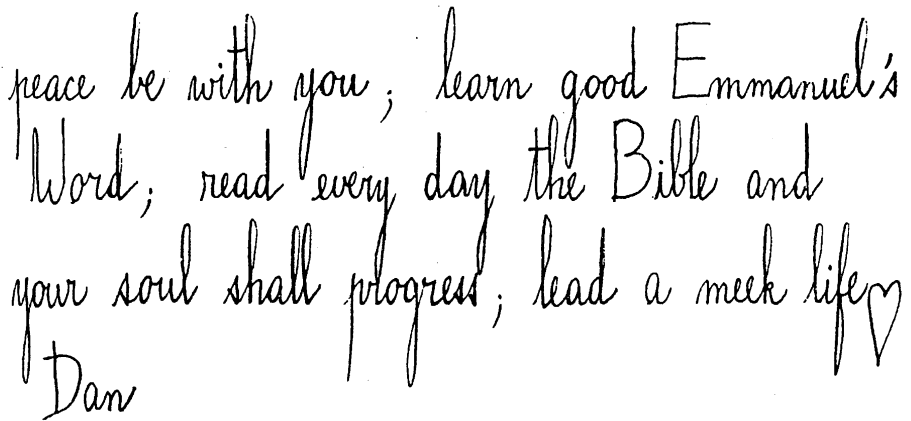 peace be with you; learn good Emmanuel's
Word; read every day the Bible and
your soul shall progress; lead a meek life♡
Dan